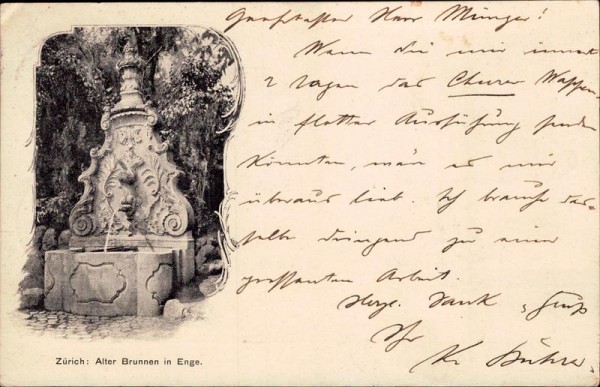 Geehrtester Herr Münger!
Wenn Sie mir innert
2 Tagen das Churer Wappen
in flotter Ausführung senden
könnten, wäre es mir
überaus lieb. Ich brauche das-
selbe dringend zu einer
Arbeit.
Herzl. Dank & Gruss
Ihr
K.
Zürich: Alter Brunnen in Enge.